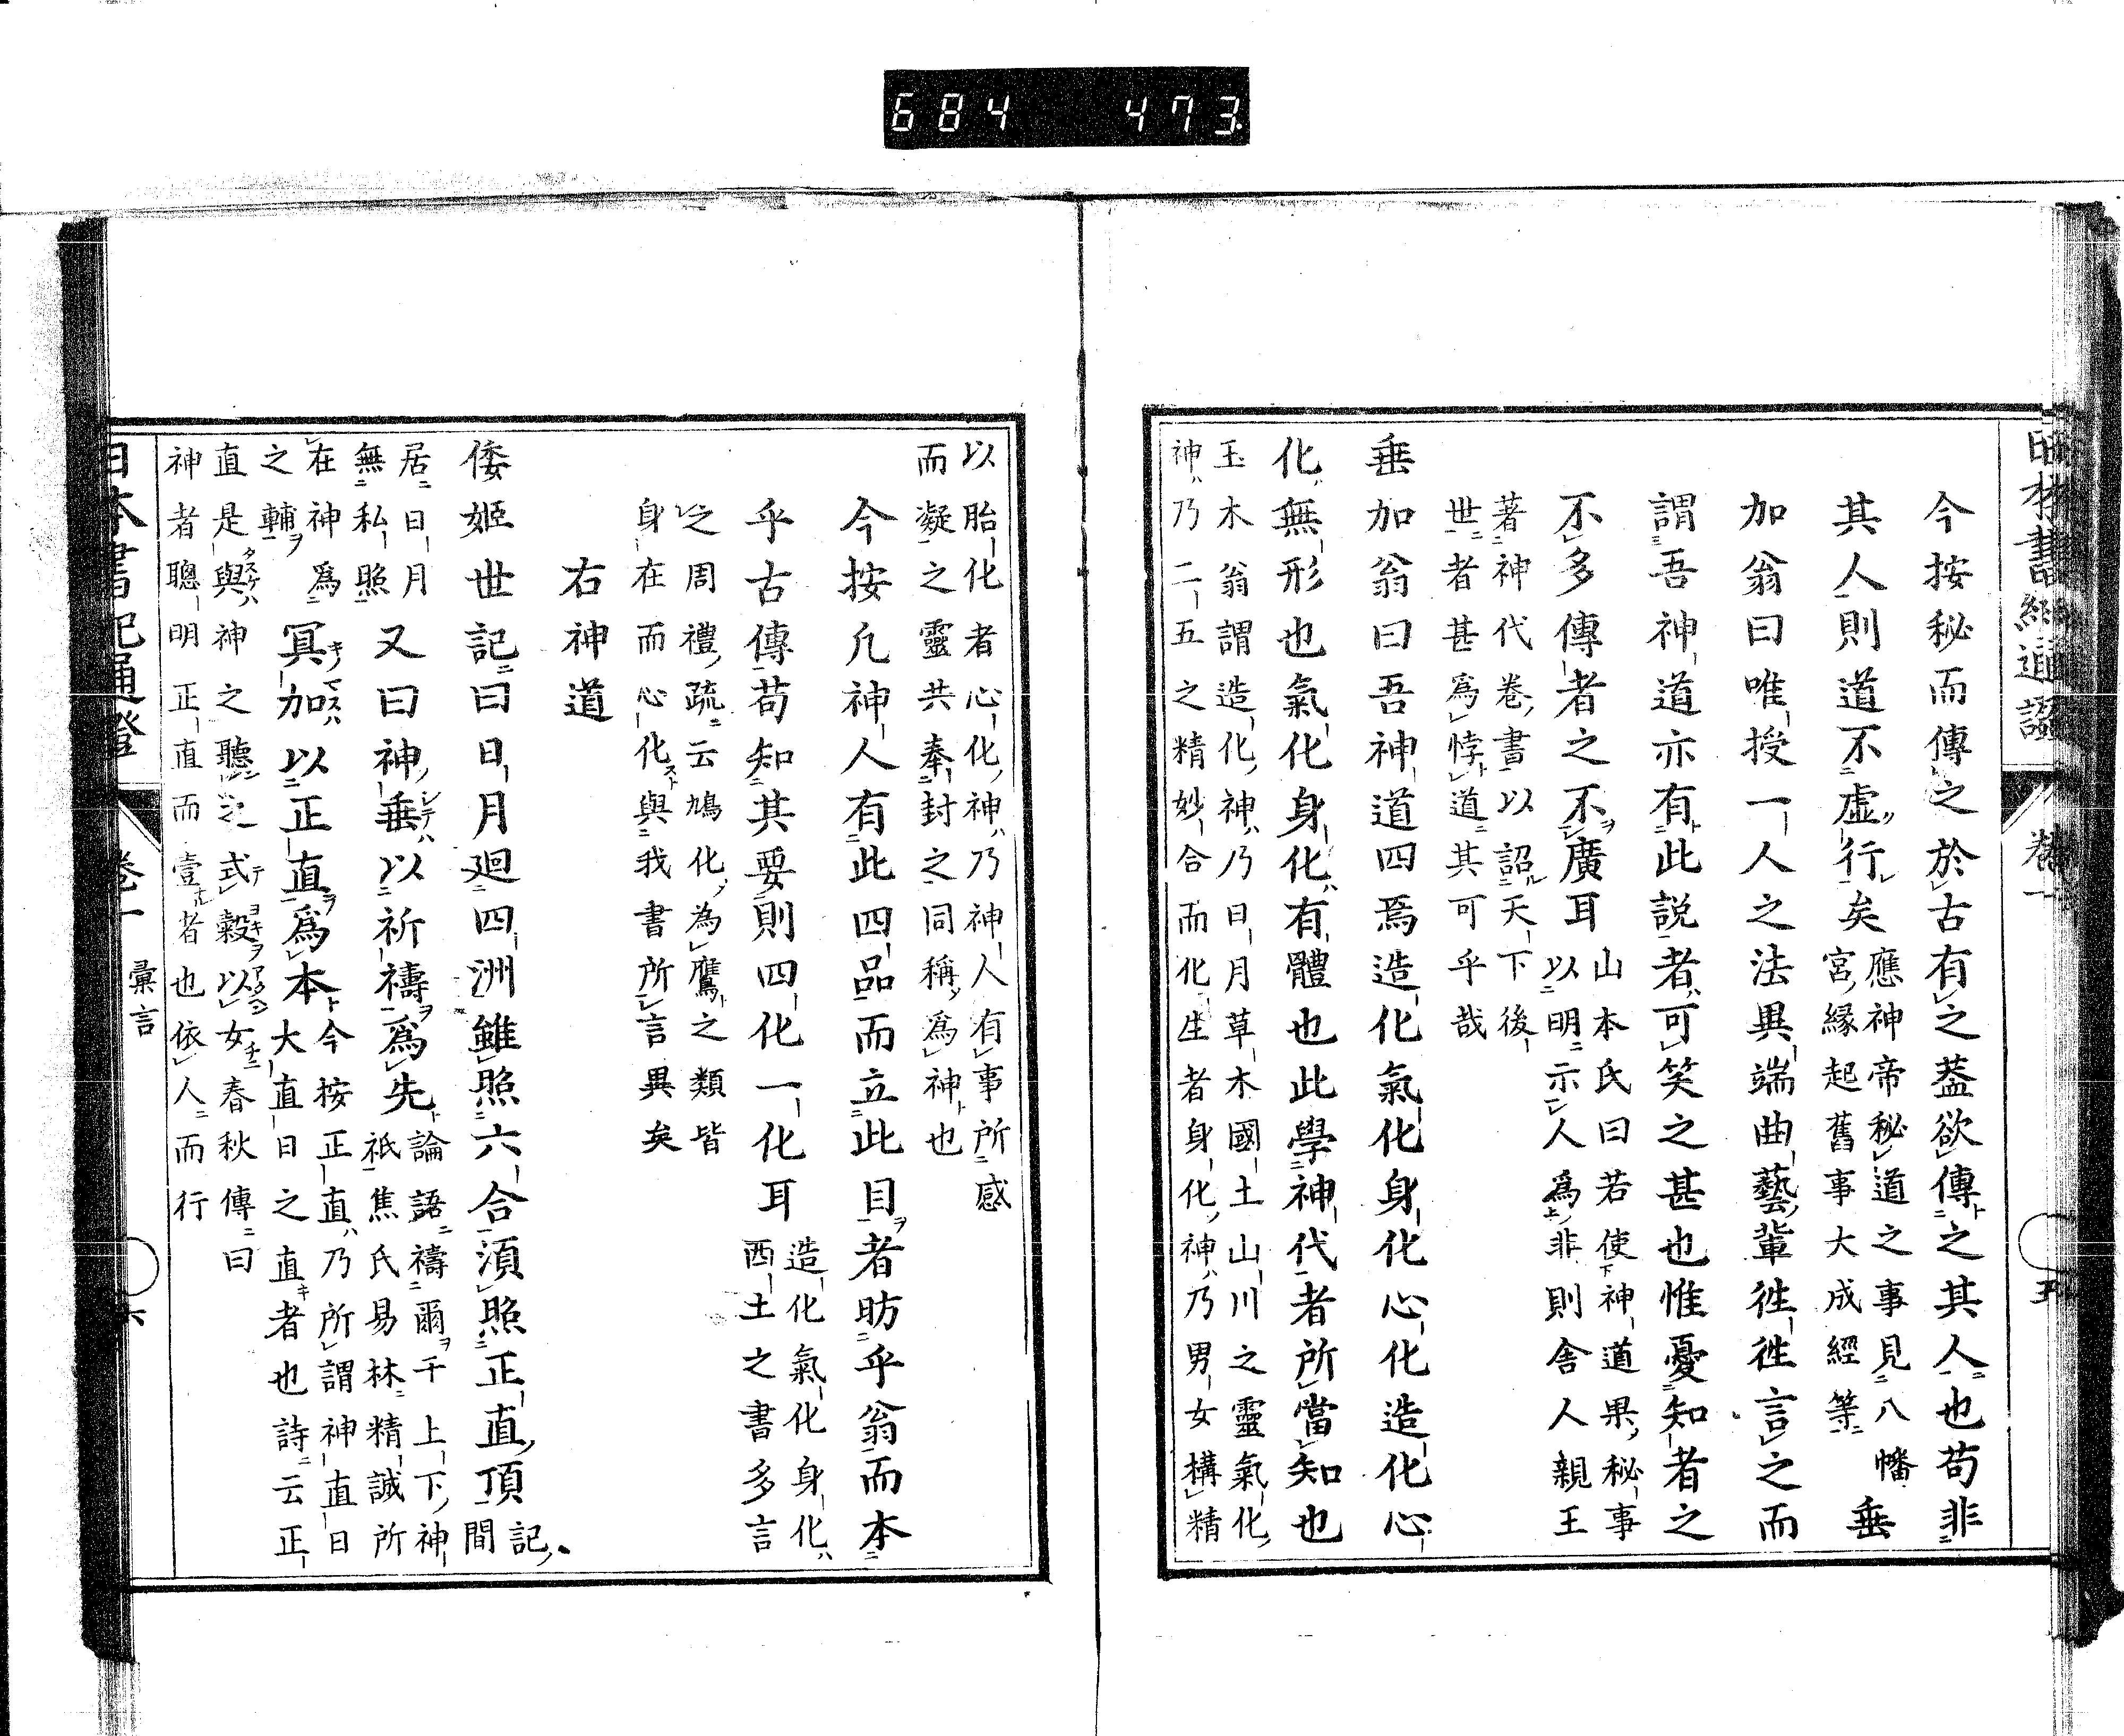 684 473
日本書紀通證 卷一 五
今按秘而傳之於古有之蓋欲傳之其人也苟非
其人則道不虚行矣
應神帝秘道之事見八幡
宮縁起舊事大成經等
垂
加翁曰唯授一人之法異端曲藝輩徃徃言之而
謂吾神道亦有此説者可笑之甚也惟憂知者之
不多傳者之不廣耳
山本氏曰若使神道果秘事
以明示人爲非則舍人親王
著神代卷書以詔天下後
世者甚爲悖道其可乎哉
垂加翁曰吾神道四焉造化氣化身化心化造化心
化無形也氣化身化有體也此學神代者所當知也
玉木翁謂造化神乃日月草木國土山川之靈氣化
神乃二五之精妙合而化生者身化神乃男女構精
以胎化者心化神乃神人有事所感
而凝之靈共奉封之同稱爲神也
今按凢神人有此四品而立此目者昉乎翁而本
乎古傳苟知其要則四化一化耳
造化氣化身化
西土之書多言
之周禮疏云鳩化為鷹之類皆
身在而心化與我書所言異矣
右神道
倭姬世記曰日月廻四洲雖照六合須照正直頂
記間
居日月
無私照
又曰神垂以祈禱爲先
論語禱爾于上下神
祇焦氏易林精誠所
在神爲
之輔
冥加以正直爲本
今按正直乃所謂神直日
大直日之直者也詩云正
直是與神之聽之式穀以女春秋傳曰
神者聰明正直而壹者也依人而行
日本書紀通證 卷一 彙言 六